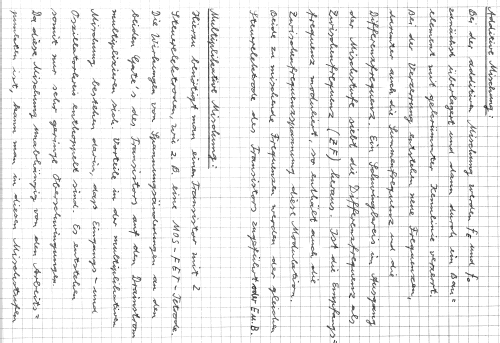 Additive Mischung:
Bei der additiven Mischung werden fe und fo
zunächst überlagert und dann durch ein Bau=
element mit gekrümmter Kennlinie verzerrt.
Bei der Verzerrung entstehen neue Frequenzen,
darunter auch die Summenfrequenz und die
Differenzfrequenz. Ein Schwingkreis im Ausgang
der Mischstufe siebt die Differenzfrequenz als
Zwischenfrequenz (ZF) heraus. Ist die Empfangs=
frequenz moduliert, so enthält auch die
Zwischenfrequenzspannung diese Modulation.
Beide zu mischende Frequenzen werden der gleichen
Steuerelektrode des Transistors zugeführt oder E u. B.
Multiplikative Mischung:
Hierzu benötigt man einen Transistor mit 2
Steuerelektroden, wie z.B. eine MOS-FET-Tetrode.
Die Wirkungen von Spannungsänderungen an den
beiden Gate's des Transistors auf den Drainstrom
multiplizieren sich. Vorteile in der multiplikativen
Mischung bestehen darin, dass Eingangs- und
Oszillatorkreis entkoppelt sind. Es entstehen
somit nur sehr geringe Oberschwingungen.
Da diese Mischung unabhängig von den Arbeits=
punkten ist, kann man in diesen Mischstufen